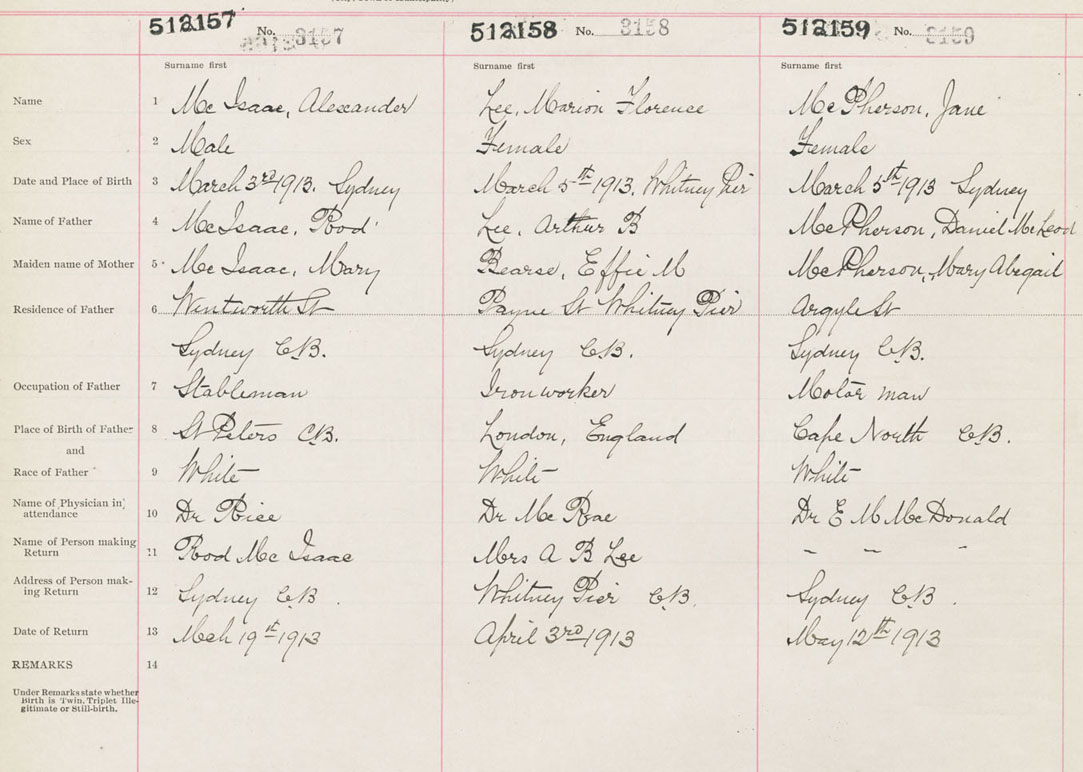 512157 No. 3157 512158 No. 3158 512159 No. 3159
Surname first Surname first Surname first
Name 1 Mc Isaac, Alexander Lee, Marion Florence McPherson, Jane
Sex 2 Male Female Female
Date and Place of Birth 3 March 3rd 1913. Sydney March 5th 1913. Whitney Pier March 5th 1913 Sydney
Name of Father 4 McIsaac, Rod Lee, Arthur B McPherson, Daniel McLeod
Maiden name of Mother 5 Mc Isaac, Mary Bearse, Effie M McPherson, Mary Abigail
Residence of Father 6 Wentworth St Payne St Whitney Pier Argyle St
Sydney C.B. Sydney C.B. Sydney C.B.
Occupation of Father 7 Stableman Ironworker Motor man
Place of Birth of Father 8 St Peters C.B. London, England Cape North C.B.
and
Race of Father 9 White White White
Name of Physician in
attendance 10 Dr Rice Dr Mc Rae Dr E M McDonald
Name of Person making
Return 11 Rod Mc Isaac Mrs A B Lee - - -
Address of Person mak-
ing Return 12 Sydney C.B. Whitney Pier C.B. Sydney C.B.
Date of Return 13 Mch 19th 1913 April 3rd 1913 May 12th 1913
REMARKS 14
Under Remarks state whether
Birth is Twin, Triplet Ille-
gitimate or Still-birth.